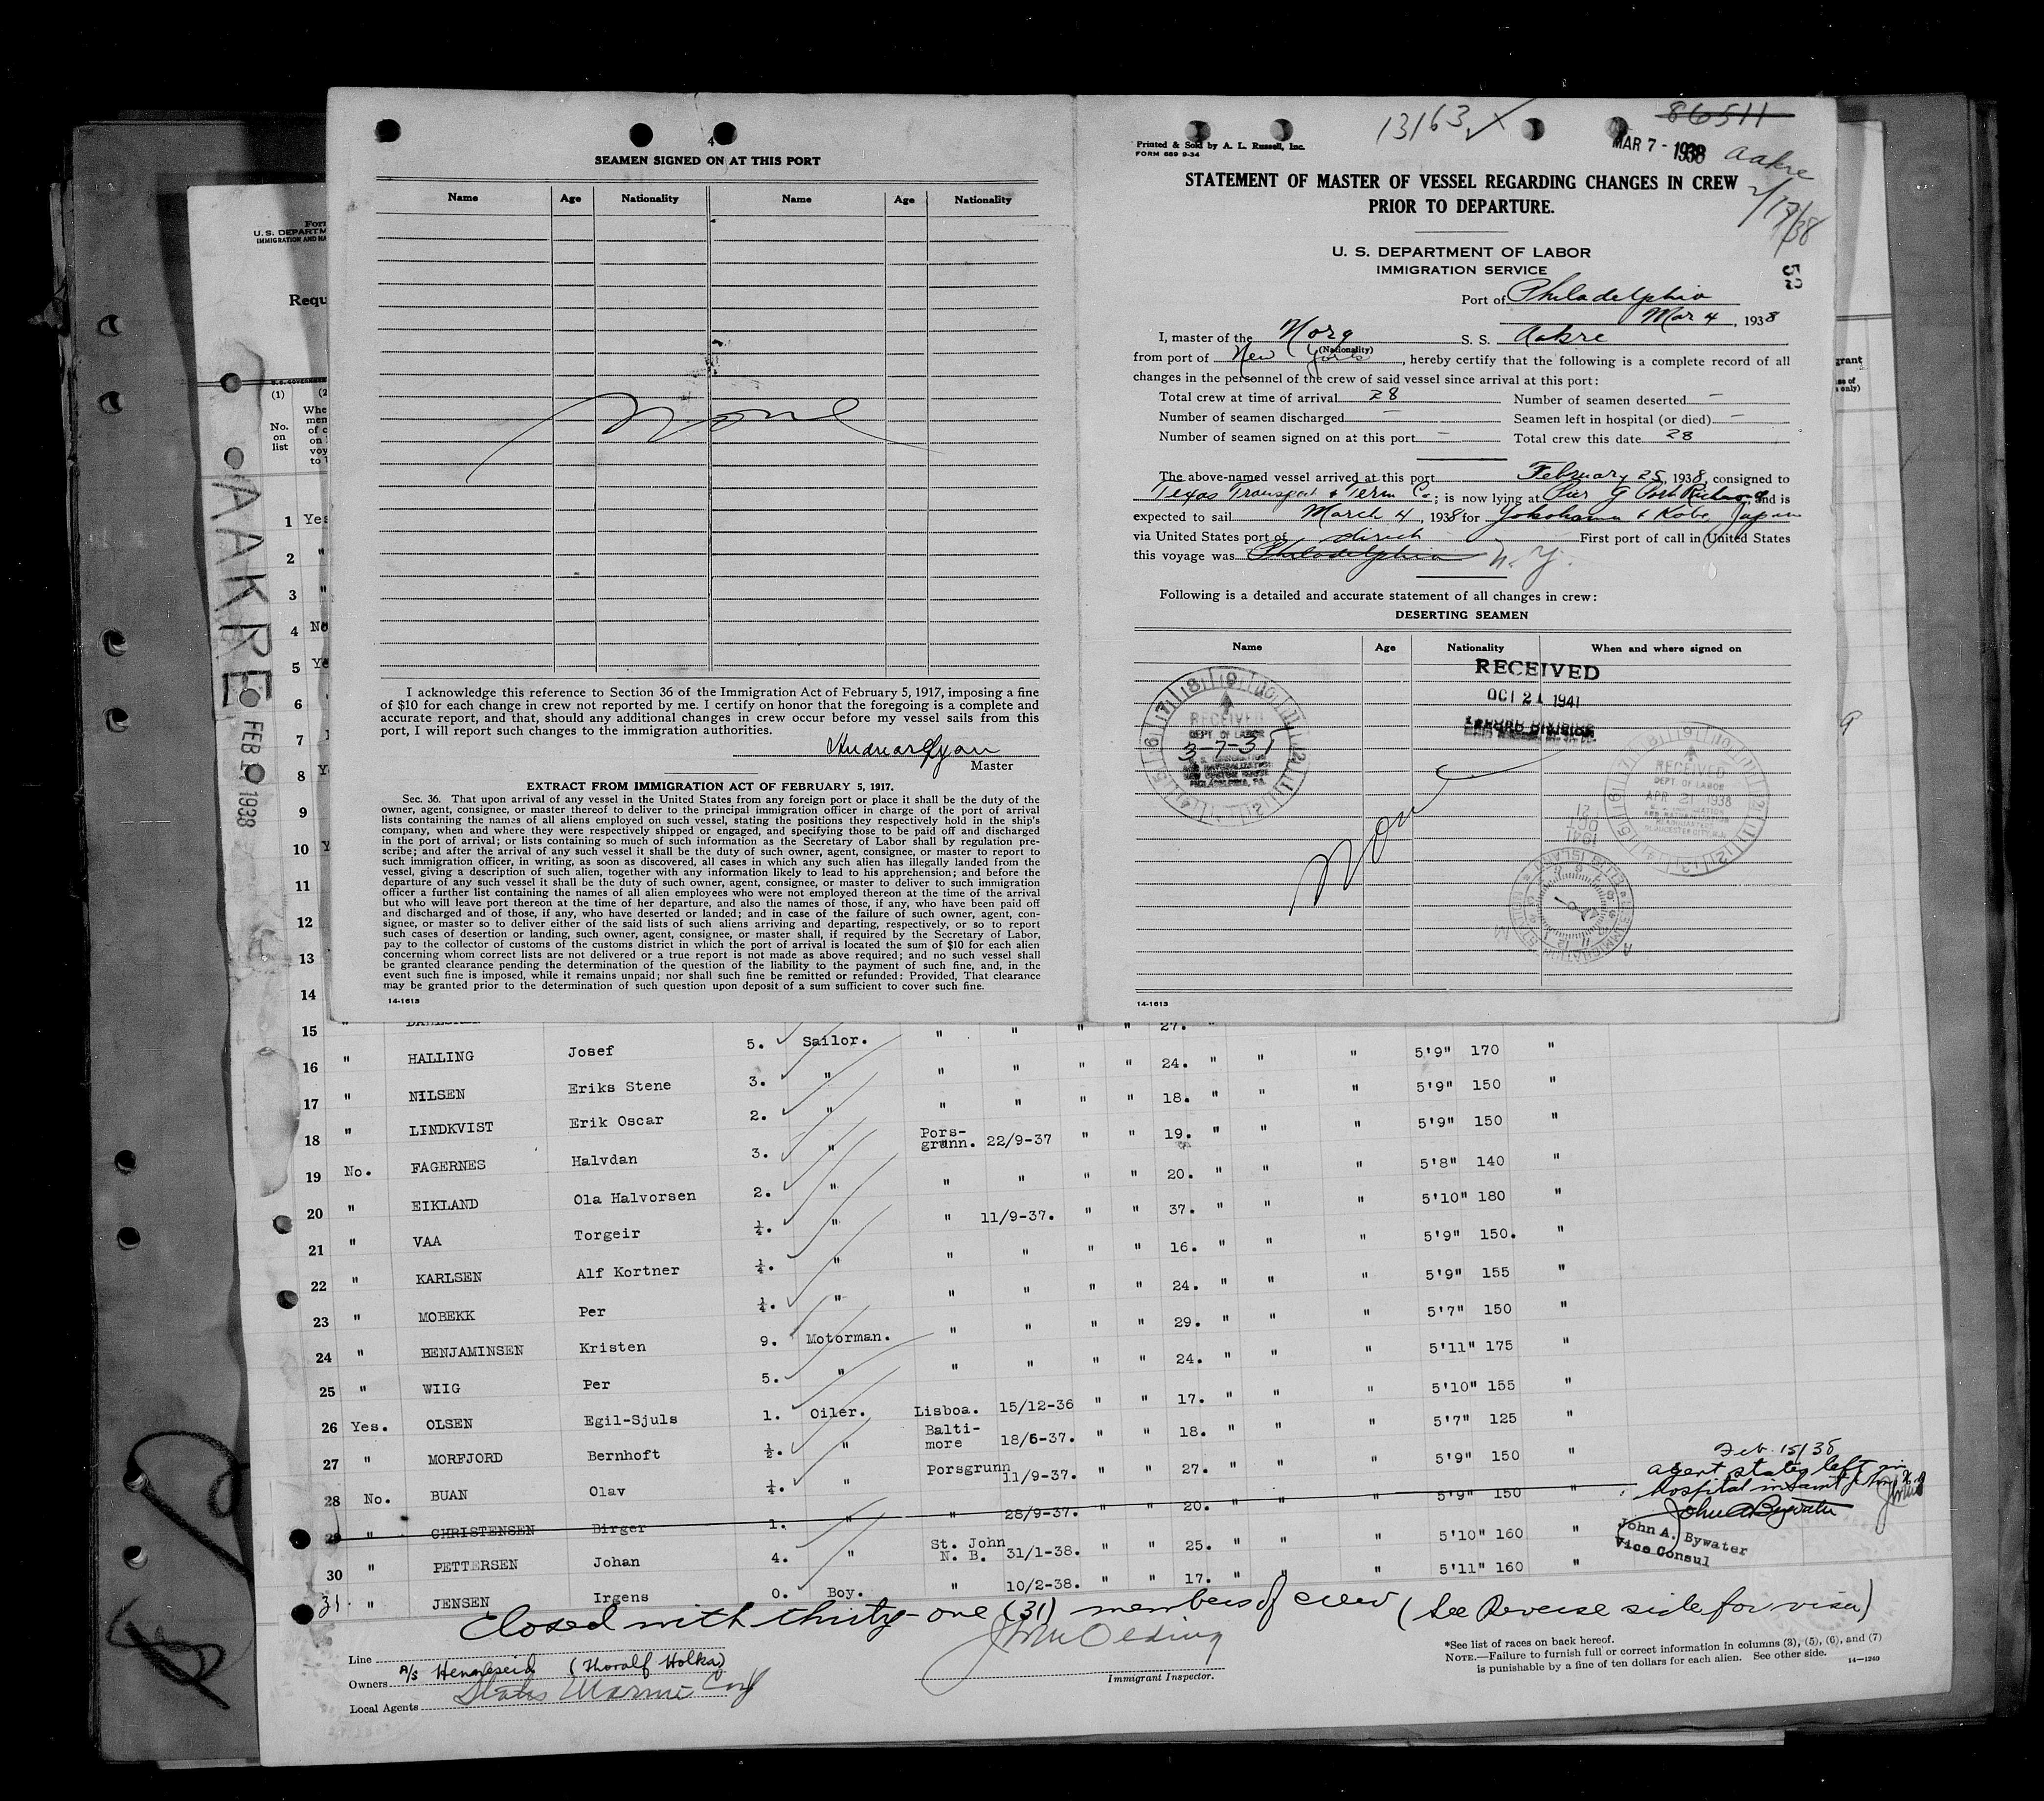 4
SEAMEN SIGNED ON AT THIS PORT
Name Age Nationality Name Age Nationality
None
I acknowledge this reference to Section 36 of the Immigration Act of February 5, 1917, imposing a fine
of $10 for each change in crew not reported by me. I certify on honor that the foregoing is a complete and
accurate report, and that, should any additional changes in crew occur before my vessel sails from this
port, I will report such changes to the immigration authorities.
Master
EXTRACT FROM IMMIGRATION ACT OF FEBRUARY 5, 1917.
Sec. 36. That upon arrival of any vessel in the United States from any foreign port or place it shall be the duty of the
owner, agent, consignee, or master thereof to deliver to the principal immigration officer in charge of the port of arrival
lists containing the names of all aliens employed on such vessel, stating the positions they respectively hold in the ship's
company, when and where they were respectively shipped or engaged, and specifying those to be paid off and discharged
in the port of arrival; or lists containing so much of such information as the Secretary of Labor shall by regulation pre-
scribe; and after the arrival of any such vessel it shall be the duty of such owner, agent, consignee, or master to report to
such immigration officer, in writing, as soon as discovered, all cases in which any such alien has illegally landed from the
vessel, giving a description of such alien, together with any information likely to lead to his apprehension; and before the
departure of any such vessel it shall be the duty of such owner, agent, consignee, or master to deliver to such immigration
officer a further list containing the names of all alien employees who were not employed thereon at the time of the arrival
but who will leave port thereon at the time of her departure, and also the names of those, if any, who have been paid off
and discharged and of those, if any, who have deserted or landed; and in case of the failure of such owner, agent, con-
signee, or master so to deliver either of the said lists of such aliens arriving and departing, respectively, or so to report
such cases of desertion or landing, such owner, agent, consignee, or master shall, if required by the Secretary of Labor,
pay to the collector of customs of the customs district in which the port of arrival is located the sum of $10 for each alien
concerning whom correct lists are not delivered or a true report is not made as above required; and no such vessel shall
be granted clearance pending the determination of the question of the liability to the payment of such fine, and, in the
event such fine is imposed, while it remains unpaid; nor shall such fine be remitted or refunded: Provided, That clearance
may be granted prior to the determination of such question upon deposit of a sum sufficient to cover such fine.
14-1613
13163 86511
Printed & Sold by A. L. Russell, Inc.
FORM 689 9-34
MAR 7 - 1938 Aakre
2/17/38
STATEMENT OF MASTER OF VESSEL REGARDING CHANGES IN CREW
PRIOR TO DEPARTURE.
U. S. DEPARTMENT OF LABOR
IMMIGRATION SERVICE
53
Port of Philadelphia
Mar 4, 1938
I, master of the Norg S. S. Aakre
(Nationality)
from port of New York, hereby certify that the following is a complete record of all
changes in the personnel of the crew of said vessel since arrival at this port:
Total crew at time of arrival 28 Number of seamen deserted —
Number of seamen discharged — Seamen left in hospital (or died) —
Number of seamen signed on at this port — Total crew this date 28
The above-named vessel arrived at this port February 25, 1938, consigned to
Texas Transport & Term Co.; is now lying at Pier G Port Richmond and is
expected to sail March 4, 1938 for Yokohama & Kobe, Japan
via United States port of direct First port of call in United States
this voyage was Philadelphia N.Y.
Following is a detailed and accurate statement of all changes in crew:
DESERTING SEAMEN
Name Age Nationality When and where signed on
RECEIVED
OCT 21 1941
RECORD DIVISION
RECEIVED
DEPT. OF LABOR
PHILADELPHIA, PA.
RECEIVED
DEPT. OF LABOR
APR 21 1938
GLOUCESTER CITY, N.J.
None
14-1613
Form
U. S. DEPARTM
IMMIGRATION AND NA
Requ
(1) (2
No.
on
list
AAKRE
FEB 1938
1 Yes
2 "
3 "
4 No
5 Ye
6
7
8 Y
9
10 Y
11
12
13
14
15 " 27. "
16 " HALLING Josef 5. Sailor. " " " " 24. " " " 5'9" 170 "
17 " NILSEN Eriks Stene 3. " " " " " 18. " " " 5'9" 150 "
18 " LINDKVIST Erik Oscar 2. " Pors-grunn. 22/9-37 " " 19. " " " 5'9" 150 "
19 No. FAGERNES Halvdan 3. " " " " " 20. " " " 5'8" 140 "
20 " EIKLAND Ola Halvorsen 2. " " 11/9-37. " " 37. " " " 5'10" 180 "
21 " VAA Torgeir ¼. " " " " " 16. " " " 5'9" 150. "
22 " KARLSEN Alf Kortner ¼. " " " " " 24. " " " 5'9" 155 "
23 " MOBEKK Per ¼. " " " " " 29. " " " 5'7" 150 "
24 " BENJAMINSEN Kristen 9. Motorman. " " " " 24. " " " 5'11" 175 "
25 " WIIG Per 5. " Lisboa. 15/12-36 " " 17. " " " 5'10" 155 "
26 Yes. OLSEN Egil-Sjuls 1. Oiler. Balti-more 18/6-37. " " 18. " " " 5'7" 125 "
27 " MORFJORD Bernhoft ½. " Porsgrunn 11/9-37. " " 27. " " " 5'9" 150 "
28 No. BUAN Olav ¼. " " 28/9-37. " " 20. " " " 5'9" 150 "
29 " CHRISTENSEN Birger 1. "
30 " PETTERSEN Johan 4. " St. John N. B. 31/1-38. " " 25. " " " 5'10" 160 "
31. " JENSEN Irgens 0. Boy. " 10/2-38. " " 17. " " " 5'11" 160 "
Feb. 15/38
agent states left in
hospital in Saint John N.B.
John A Bywater
John A. Bywater
Vice Consul
Closed with thirty-one (31) members of crew (See Reverse side for visa)
Line
Owners A/S Hennseid (Thoralf Holta)
Local Agents States Marine Corp
Immigrant Inspector.
*See list of races on back hereof.
NOTE.—Failure to furnish full or correct information in columns (3), (5), (6), and (7)
is punishable by a fine of ten dollars for each alien. See other side.
14—1240